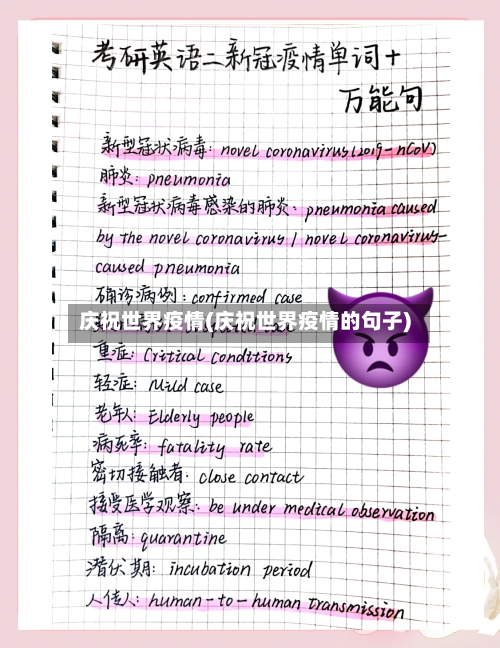 考研英语二新冠疫情单词+
万能句
新型冠状病毒: novel coronavirus(2019-nCoV)
肺炎: pneumonia
新型冠状病毒感染的肺炎: pneumonia caused
by the novel coronavirus / novel coronavirus-
caused pneumonia
确诊病例: confirmed case
庆祝世界疫情(庆祝世界疫情的句子)
重症: Critical conditions
轻症: Mild case
老年人: Elderly people
病死率: fatality rate
密切接触者: close contact
接受医学观察: be under medical observation
隔离: quarantine
潜伏期: incubation period
人传人: human-to-human transmission